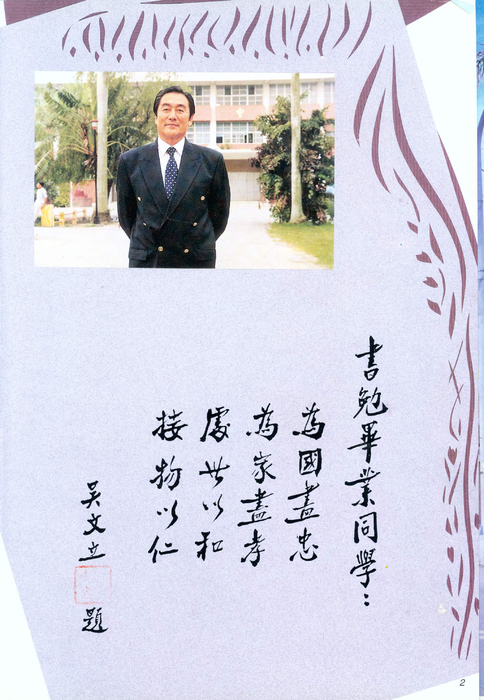 書勉畢業同學：
為國盡忠
為家盡孝
處世以和
接物以仁
吳文立
題
2